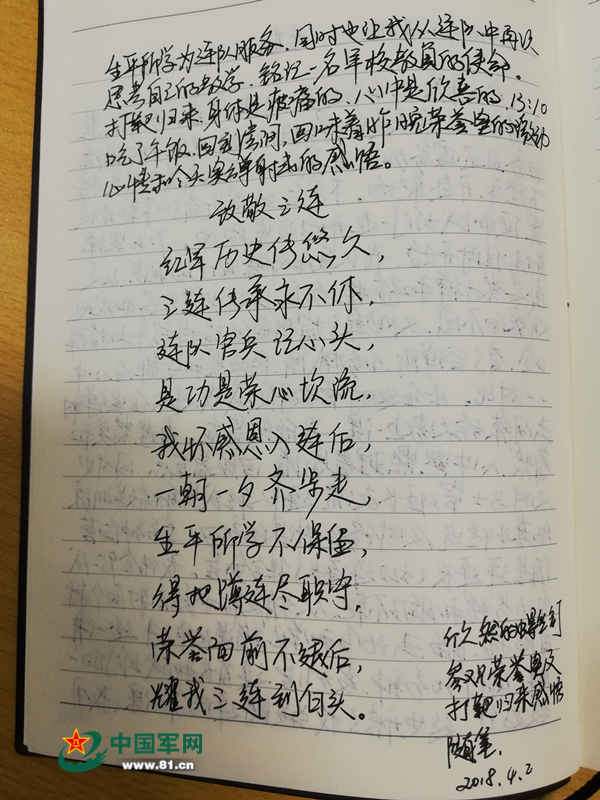 生平所学为连队服务,同时也让我从连队中再次
思考自己的教学,铭记一名军校教员的使命。
打靶归来,身体是疲惫的,心中是欣喜的,13:10
吃了午饭,回到房间,回味着昨晚荣誉室的激动
心情和今天实弹射击的感悟。
致敬三连
红军历史传悠久,
三连传承永不休,
连队官兵记心头,
是功是荣心坎流,
我怀感恩入连后,
一朝一夕齐步走,
生平所学不保留,
得把连尽职守,
荣誉面前不缄后,
耀我三连到白头。
参观荣誉室及
打靶归来感悟
随笔.
2018.4.2
中国军网
www.81.cn